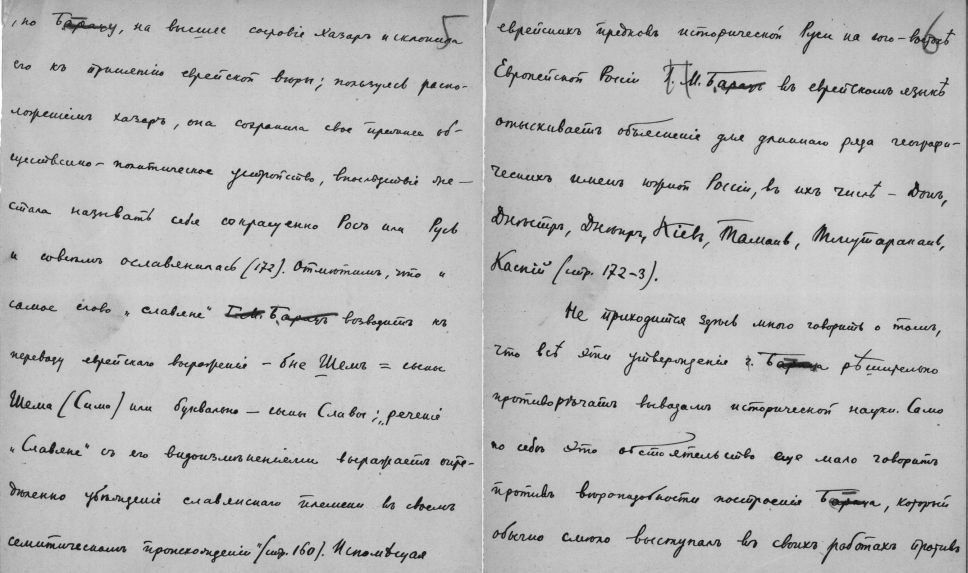 5
, по Барацу, на высшее сословіе Хазаръ и склонила
его къ принятію еврейской вѣры; пользуясь распо-
ложеніемъ хазаръ, она сохранила свое прежнее об-
щественно-политическое устройство, впослѣдствіе же —
стала называть себя сокращенно Росъ или Русь
и совсѣмъ ославянилась (172). Отмѣтимъ, что и
самое слово „славяне" Г. М. Барацъ возводитъ къ
переводу еврейскаго выраженія — бне Шемъ = сыны
Шема (Сима) или буквально — сыны Славы; „реченіе
„Славяне" съ его видоизмѣненіями выражаетъ опре-
дѣленно убѣжденіе славянскаго племени въ своемъ
семитическомъ происхожденіи" (стр. 160). Исповѣдуя
6
еврейскихъ предковъ исторической Руси на юго-востокѣ
Европейской Россіи Г. М. Барацъ въ еврейскомъ языкѣ
отыскиваетъ объясненіе для длиннаго ряда географи-
ческихъ именъ южной Россіи, въ ихъ числѣ — Донъ,
Днѣстръ, Днѣпръ, Кіевъ, Тамань, Тмутаракань,
Каспій (стр. 172-3).
Не приходится здѣсь много говорить о томъ,
что всѣ эти утвержденія г. Бараца рѣшительно
противорѣчатъ выводамъ исторической науки. Само
по себѣ это обстоятельство еще мало говоритъ
противъ вѣроподобности построенія Бараца, который
обычно смѣло выступалъ въ своихъ работахъ противъ